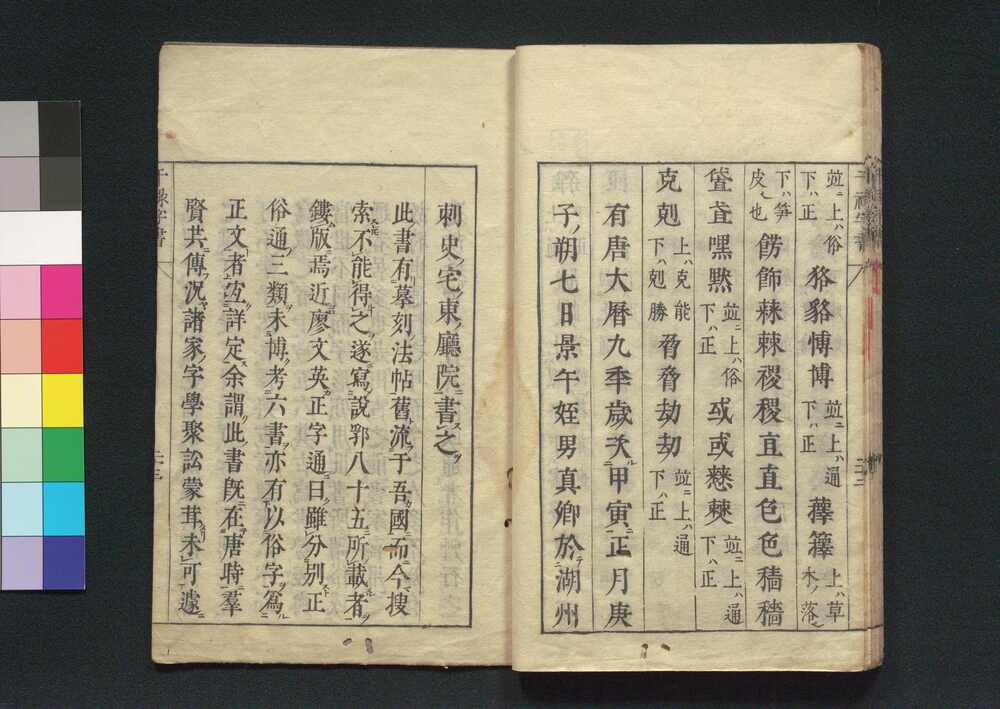 竝ニ上ハ俗下ハ正 狢貉愽博 竝ニ上ハ通下ハ正 蘀籜 上ハ草木ノ落
下ハ笋皮也 餝飾 棘 稷稷直直色色穡穡
嘿默 竝ニ上ハ俗下ハ正 或或 竝ニ上ハ通下ハ正
克剋 上ハ克能下ハ剋勝 脅脅劫刧 竝ニ上ハ通下ハ正
有唐大曆九秊歲次甲寅正月庚
子朔七日景午姪男真卿於湖州
刺史宅東廳院書之
此書有摹刻法帖舊流于吾國而今搜
索不能得之遂寫說郛八十五所載者
鏤版焉近廖文英正字通曰雖分別正
俗通三類未博考六書亦有以俗字爲
正文者宜詳定余謂此書旣在唐時羣
賢共傳況諸家字學聚訟蒙茸未可遽
干祿字書